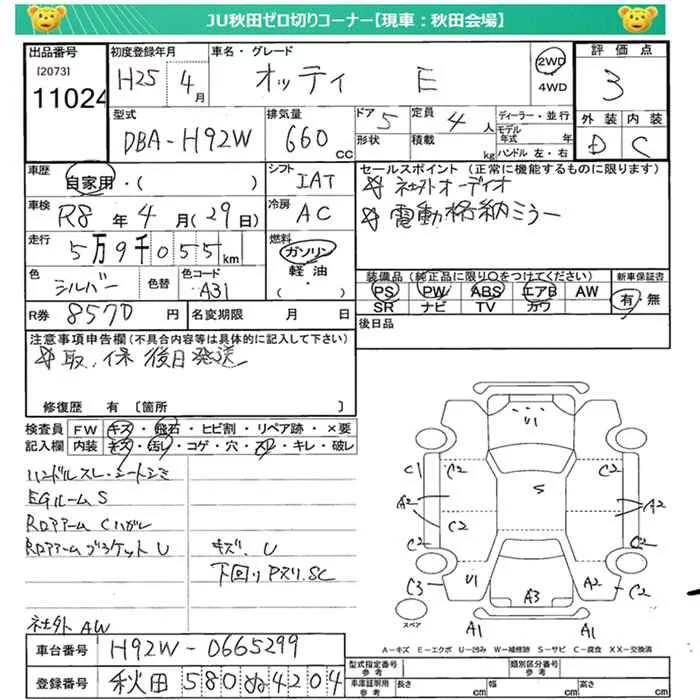 JU秋田ゼロ切りコーナー【現車：秋田会場】
出品番号 初度登録年月 車名・グレード 評価点
[2073] 11024 H25 4月 オッティ E 2WD 4WD 3
型式 排気量 ドア 5 定員 4人 ディーラー・並行 外装 内装
DBA-H92W 660cc 形状 積載 kg モデル年式 年 ハンドル 左・右 D C
車歴 自家用・( ) シフト IAT セールスポイント (正常に機能するものに限ります)
車検 R8年4月(29日) 冷房 AC 社外オーディオ
電動格納ミラー
走行 5万9千055km 燃料 ガソリン 軽油・( )
色 シルバー 色替 色コード A31 装備品(純正品に限り○をつけてください) 新車保証書
PS PW ABS エアB AW 有・無
SR ナビ TV カワ
R券 8570円 名変期限 月 日 後日品
注意事項申告欄(不具合内容等は具体的に記入して下さい)
取、保 後日発送
修復歴 有 [箇所 ]
検査員 FW キズ・飛石・ヒビ割・リペア跡・×要
記入欄 内装 キズ・汚レ・コゲ・穴・スレ・キレ・破レ
ハンドルスレ、シートシミ
EGルームS
ROアアーム Cハガレ
ROアアームブラケットU キズ、U
下回りPズリ、SC
社外AW
U1
C1 C2 C2
S
A2 A2 A2
C2 C2
C3 U1 A3 A2 C2
スペア A1 A1
A-キズ E-エクボ U-凹み W-補修跡 S-サビ C-腐食 XX-交換済
車台番号 H92W-0665299
登録番号 秋田 580 ぬ 4204
型式指定番号 参考 類別区分番号 参考
車庫証明用 参考 長さ cm 幅 cm 高さ cm